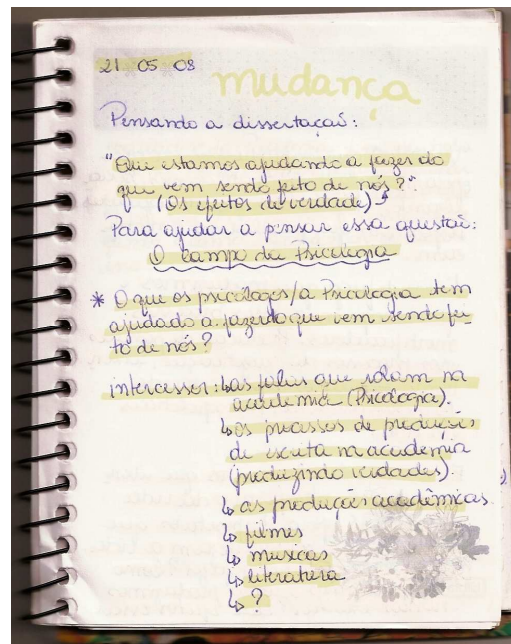 21 05 08
mudança
Pensando a dissertação:
"Que estamos ajudando a fazer do
que vem sendo feito de nós?".
(Os efeitos de verdade)
Para ajudar a pensar essa questão:
O campo da Psicologia
* O que os psicólogos/a Psicologia tem
ajudado a fazer do que vem sendo fei-
to de nós?
intercessor: ↳ as falas que rolam na
academia (Psicologia).
↳ os processos de produções
de escrita na academia
(produzindo verdades).
↳ as produções acadêmicas
↳ filmes
↳ musicas
↳ literatura
↳ ?